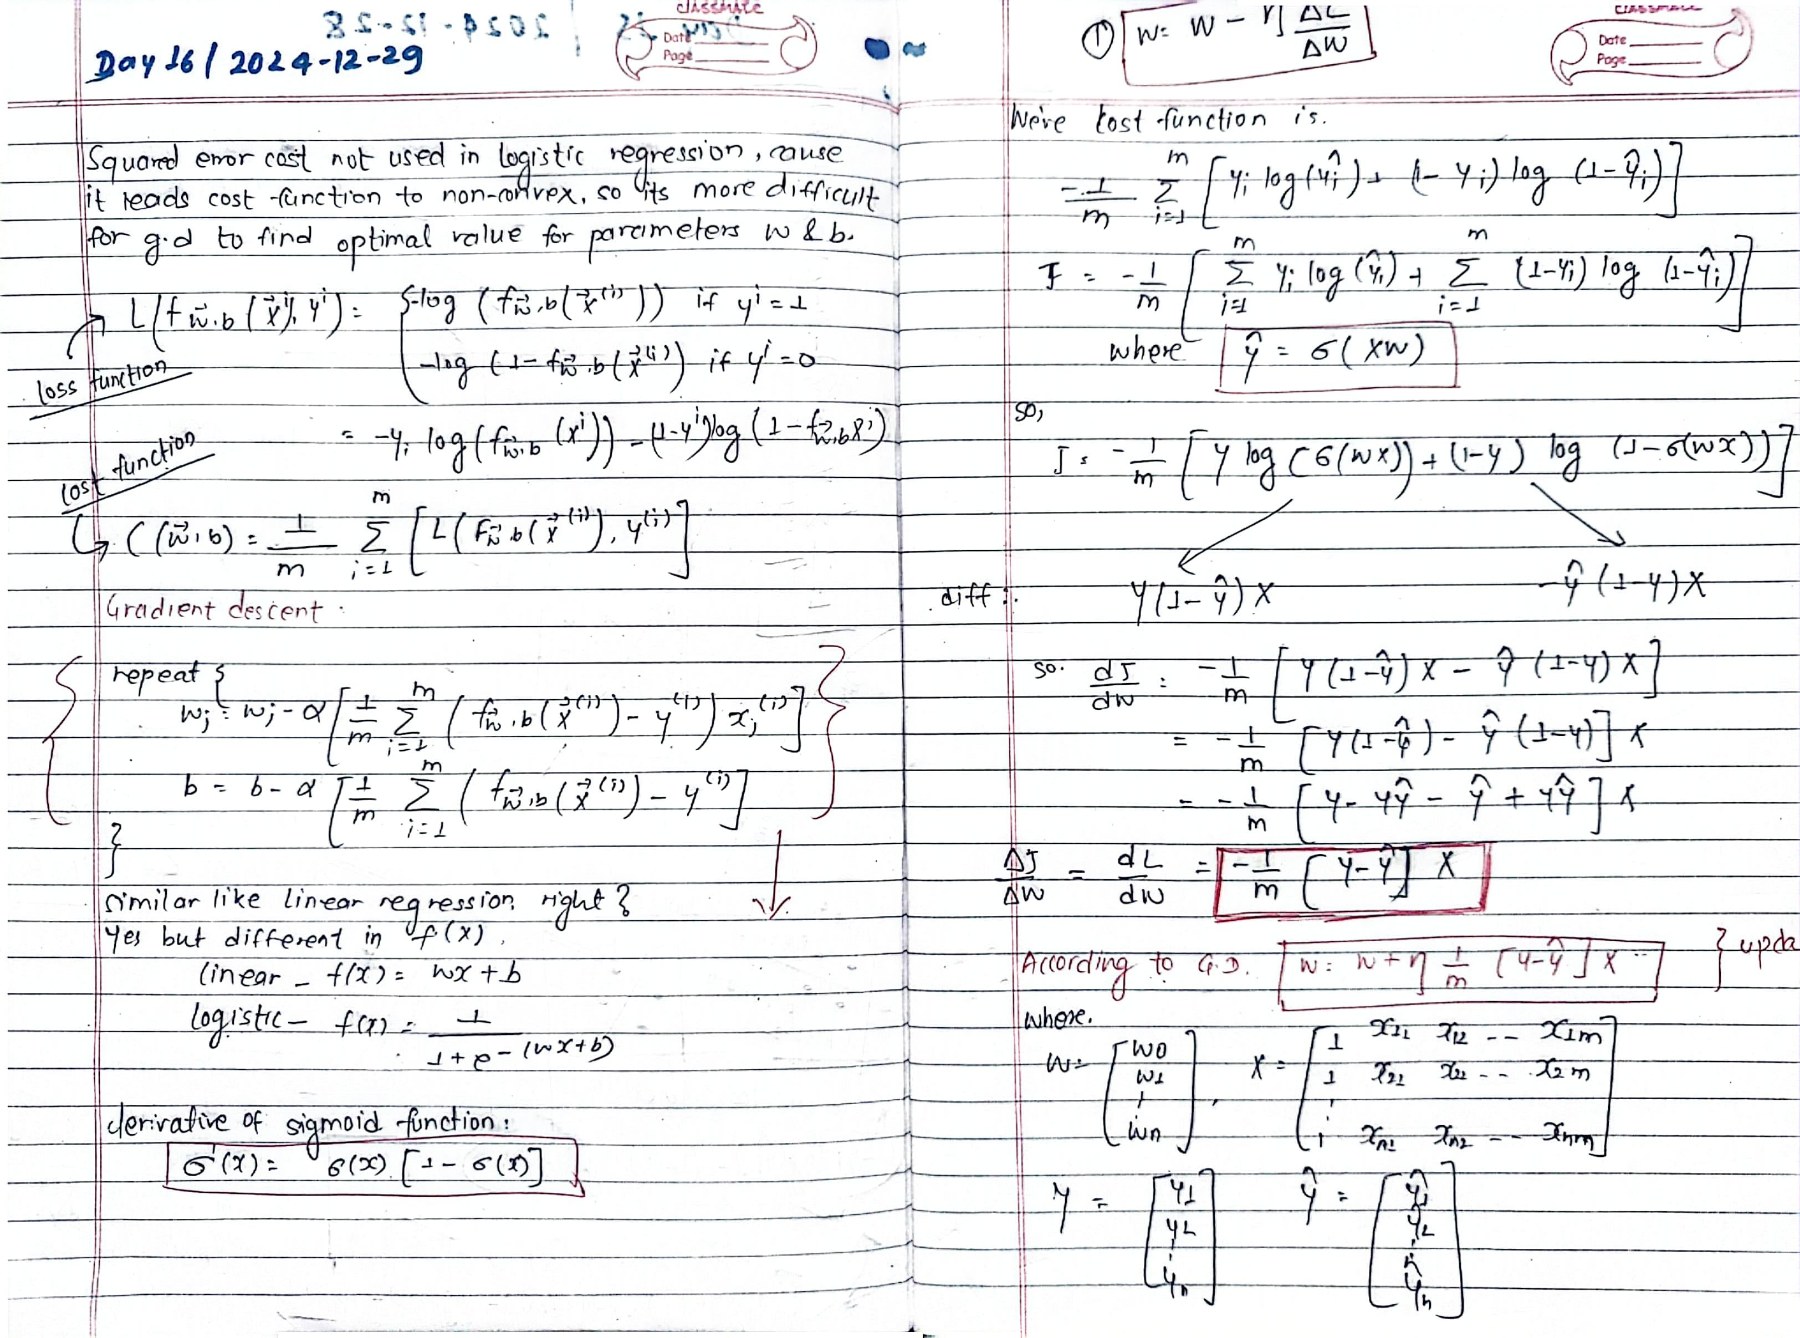 Day 16 / 2024-12-29
classmate
Date
Page
Squared error cost not used in logistic regression, cause
it leads cost function to non-convex, so its more difficult
for g.d to find optimal value for parameters w & b.
L(f w⃗,b (x⃗ⁱ), yⁱ) = { -log (f w⃗,b (x⃗⁽ⁱ⁾)) if yⁱ = 1
-log (1 - f w⃗,b (x⃗⁽ⁱ⁾)) if yⁱ = 0
loss function
= -yᵢ log(f w⃗,b (xⁱ)) - (1-yⁱ) log (1 - f w⃗,b xⁱ)
Cost function
C(w⃗,b) = 1/m Σ_{i=1}^{m} [L(f w⃗,b (x⃗⁽ⁱ⁾), y⁽ⁱ⁾]
Gradient descent.
repeat {
wⱼ = wⱼ - α [1/m Σ_{i=1}^{m} (f w⃗,b (x⃗⁽ⁱ⁾) - y⁽ⁱ⁾) xⱼ⁽ⁱ⁾]
b = b - α [1/m Σ_{i=1}^{m} (f w⃗,b (x⃗⁽ⁱ⁾) - y⁽ⁱ⁾]
}
similar like linear regression right?
Yes but different in f(x).
linear - f(x) = wx + b
logistic - f(x) = 1 / 1 + e^-(wx+b)
derivative of sigmoid function:
σ'(x) = σ(x) [1 - σ(x)]
① w = w - η ΔL/ΔW
classmate
Date
Page
We're cost function is.
-1/m Σ_{i=1}^{m} [yᵢ log(ŷᵢ) + (1-yᵢ) log (1-ŷᵢ)]
J = -1/m [Σ_{i=1}^{m} yᵢ log(ŷᵢ) + Σ_{i=1}^{m} (1-yᵢ) log (1-ŷᵢ)]
where ŷ = σ(xw)
so,
J = -1/m [y log (σ(wx)) + (1-y) log (1-σ(wx))]
diff: y(1-ŷ)x -ŷ(1-y)x
so. dJ/dw = -1/m [y(1-ŷ)x - ŷ(1-y)x]
= -1/m [y(1-ŷ) - ŷ(1-y)] x
= -1/m [y - yŷ - ŷ + yŷ] x
ΔJ/ΔW = dL/dw = -1/m [y-ŷ] x
According to G.D. w = w + η 1/m [y-ŷ] x } upda
where.
w = [w0 w1 ⋮ wn], X = [1 x11 x12 -- x1m
1 x21 x22 -- x2m
⋮
1 xn1 xn2 -- xnm]
y = [y1 y2 ⋮ yn] ŷ = [ŷ1 ŷ2 ⋮ ŷn]